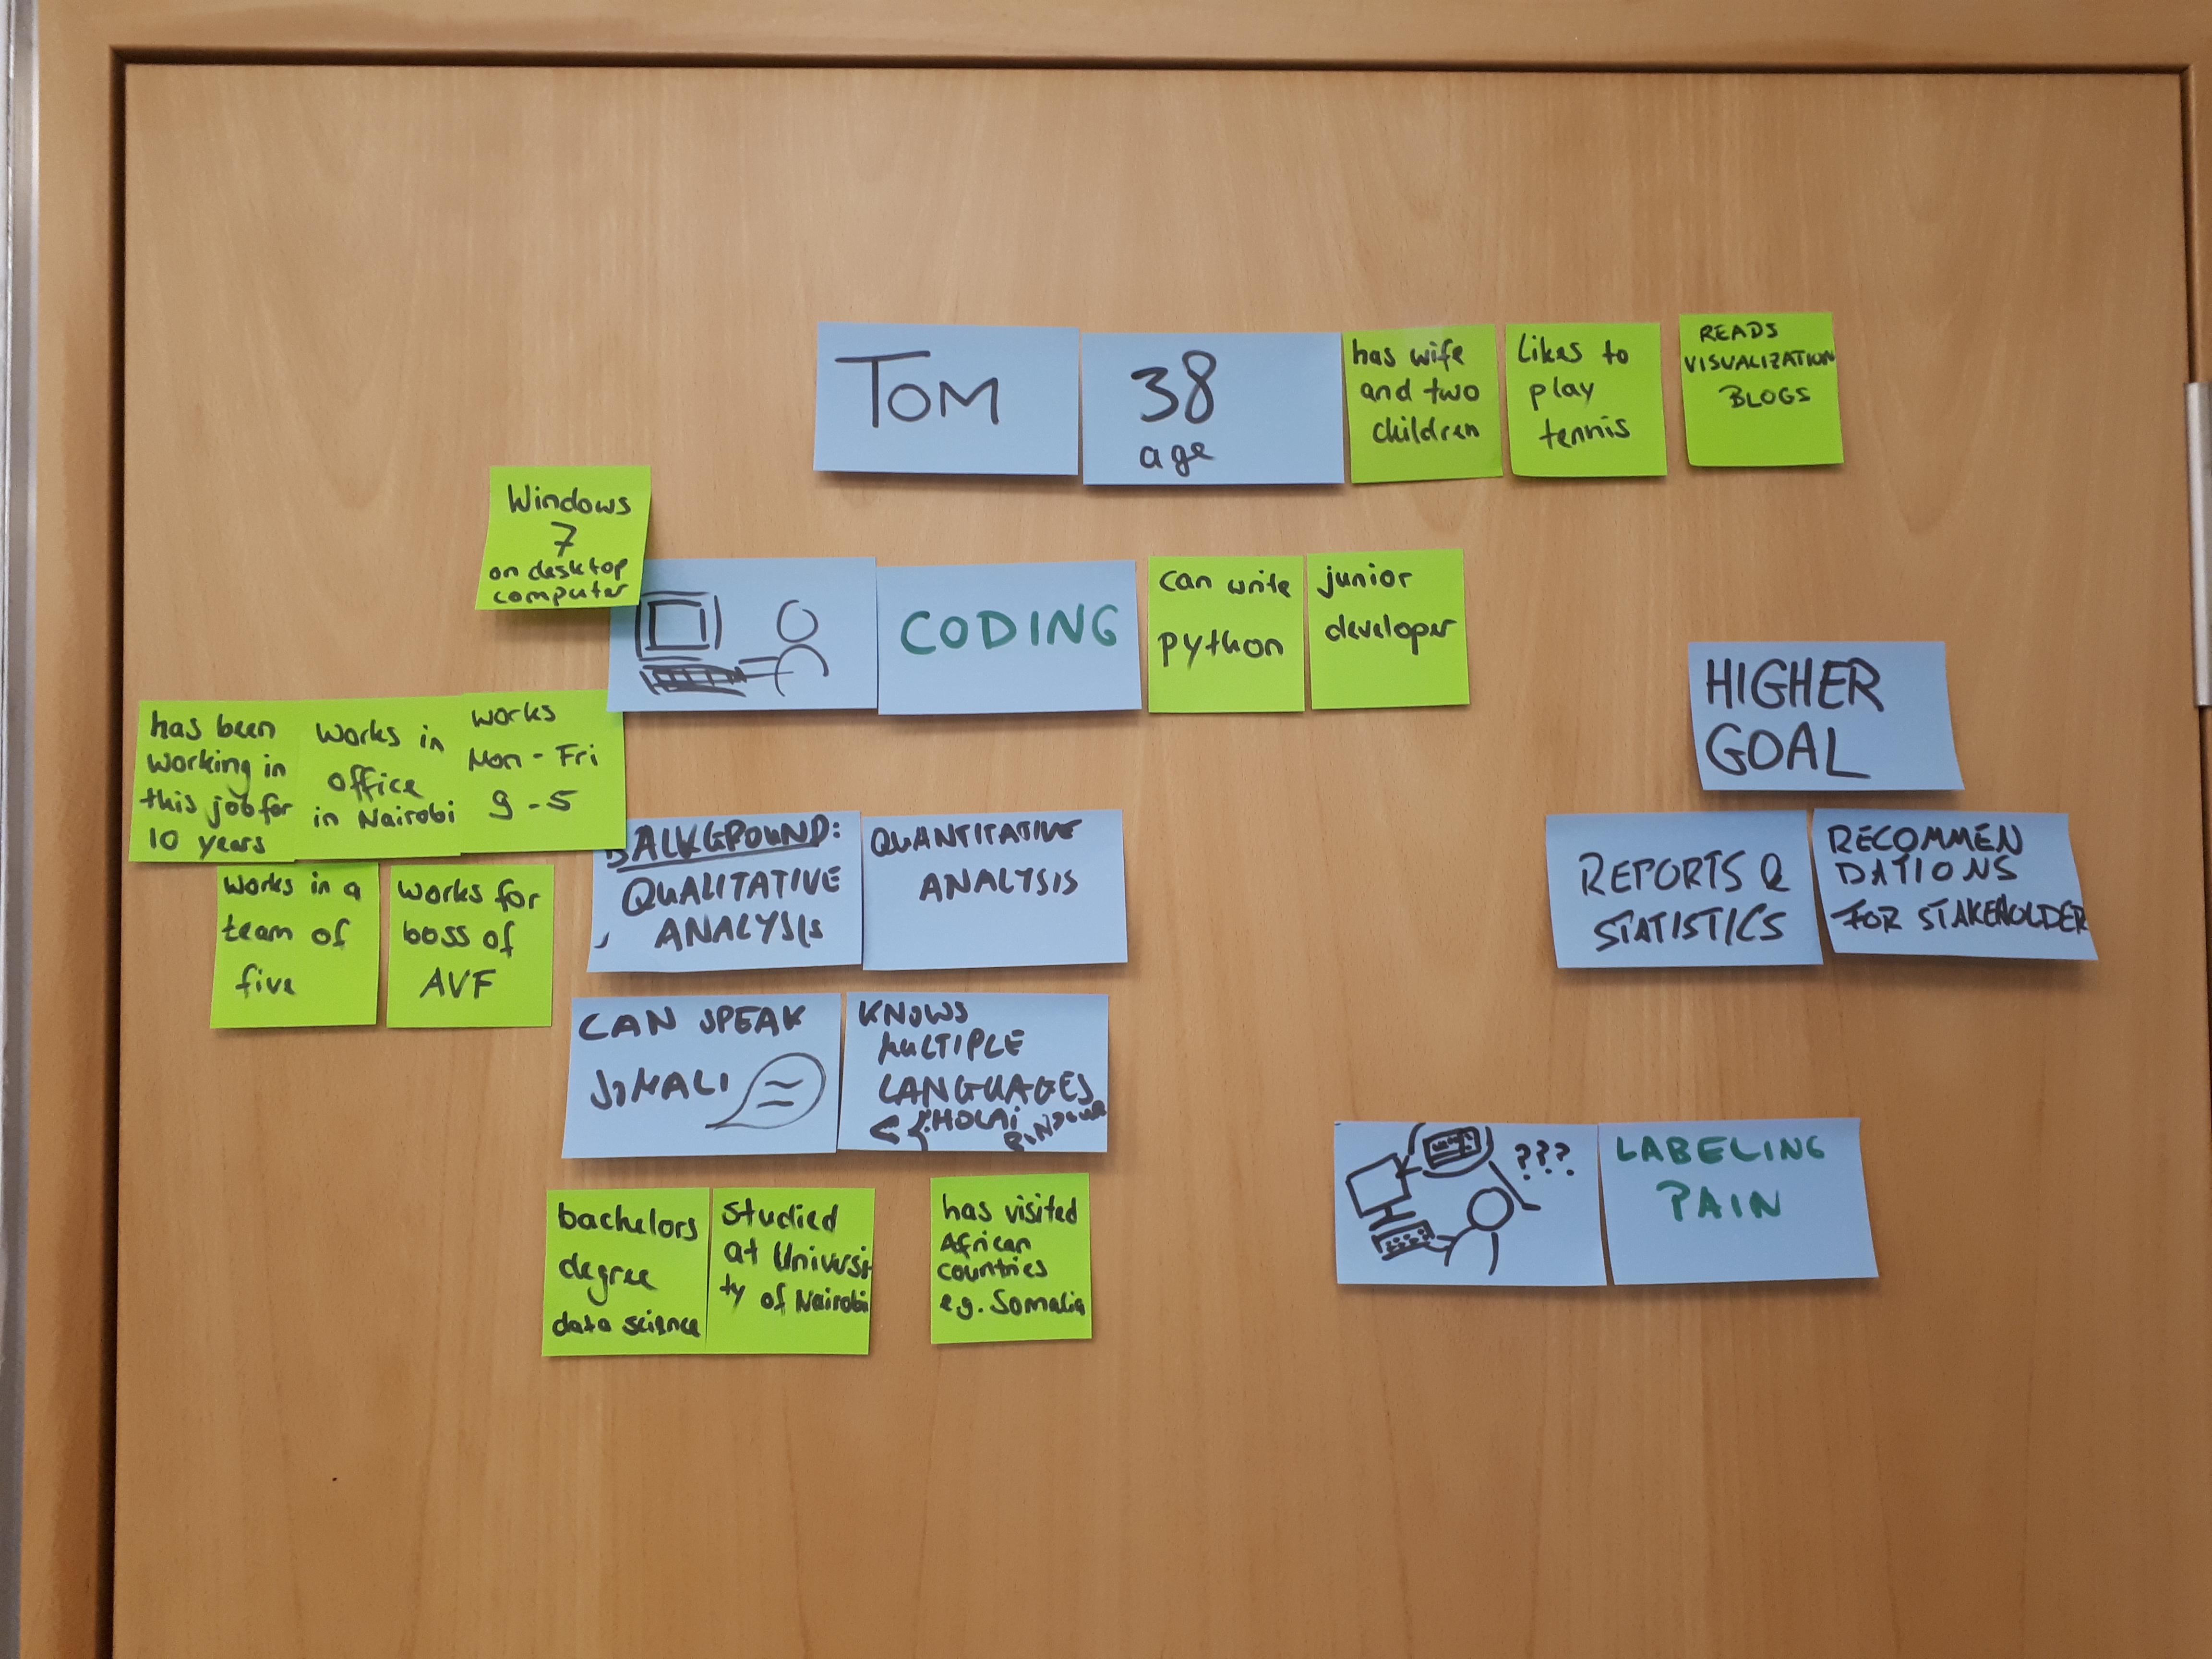 TOM
38
age
has wife
and two
children
Likes to
play
tennis
READS
VISUALIZATION
BLOGS
Windows
7
on desktop
computer
CODING
can write
python
junior
developer
HIGHER
GOAL
has been
working in
this job for
10 years
Works in
office
in Nairobi
works
Mon - Fri
9 - 5
works in a
team of
five
works for
boss of
AVF
BACKGROUND:
QUALITATIVE
ANALYSIS
QUANTITATIVE
ANALYSIS
REPORTS &
STATISTICS
RECOMMEN
DATIONS
FOR STAKEHOLDER
CAN SPEAK
SOMALI
KNOWS
MULTIPLE
LANGUAGES
???
LABELING
PAIN
bachelors
degree
data science
studied
at Universi
ty of Nairobi
has visited
African
countries
e.g. Somalia